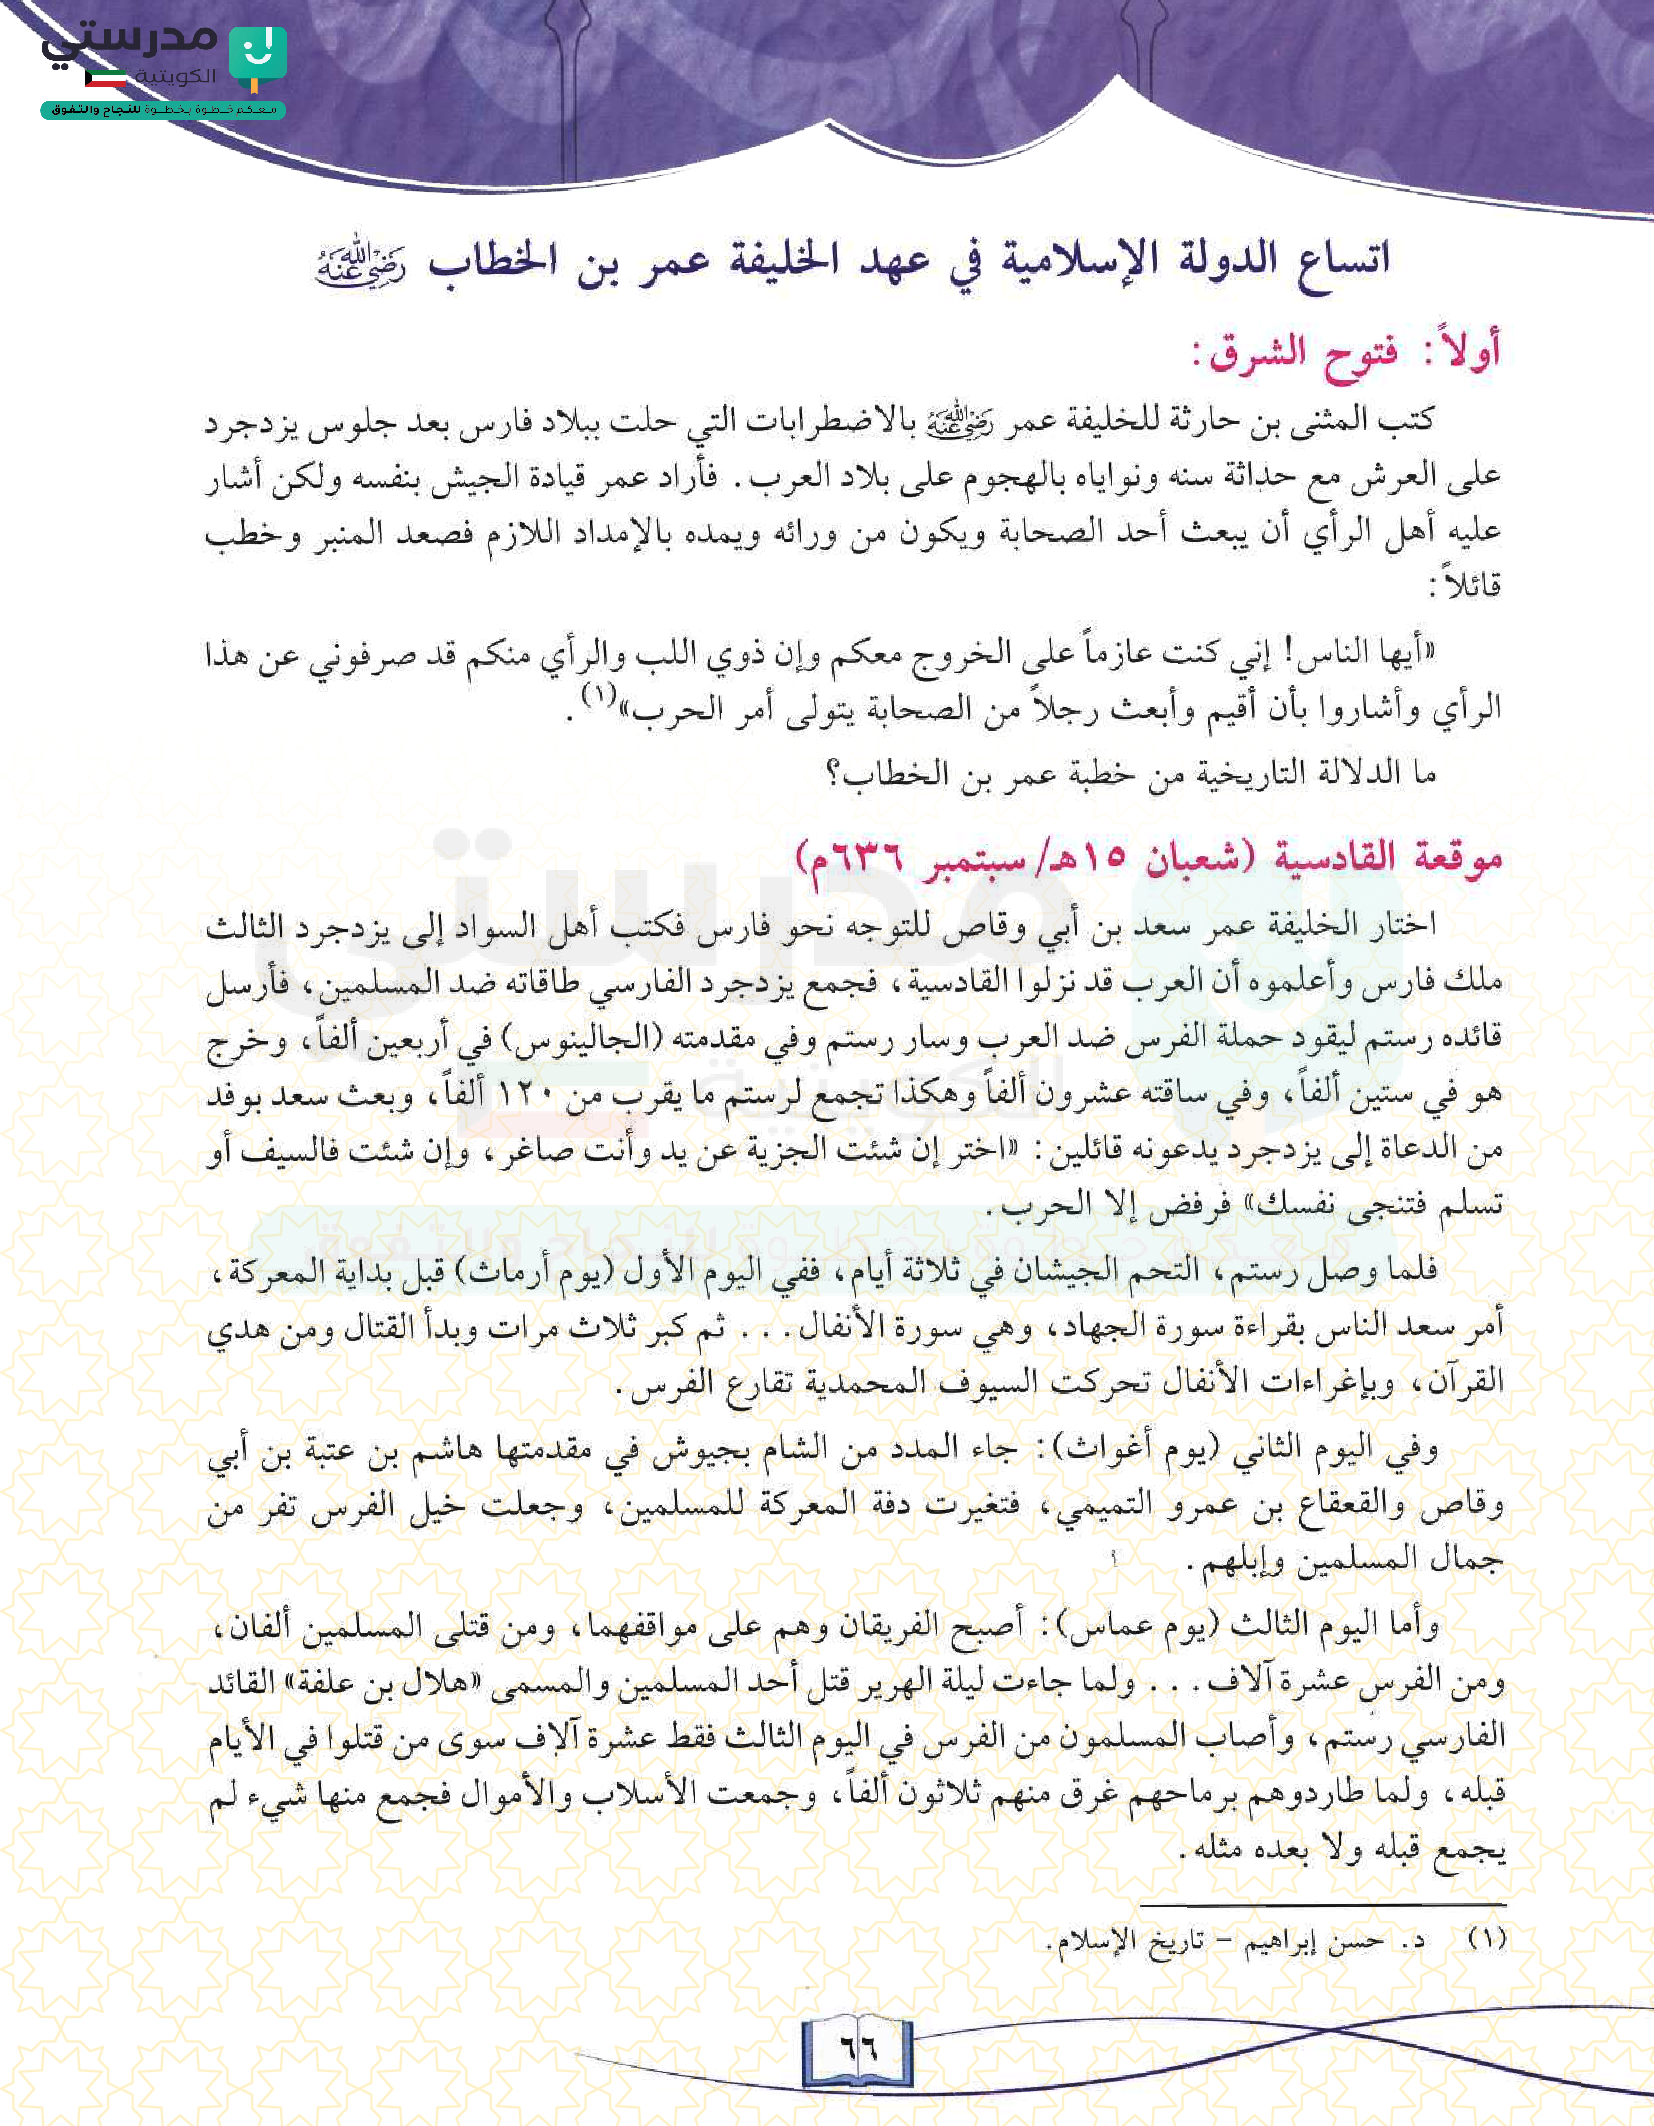 مدرستي
الكويتية
معكم خطوة بخطوة للنجاح والتفوق
اتساع الدولة الإسلامية في عهد الخليفة عمر بن الخطاب رَضِيَ اللهُ عَنْهُ
أولاً: فتوح الشرق:
كتب المثنى بن حارثة للخليفة عمر رَضِيَ اللهُ عَنْهُ بالاضطرابات التي حلت ببلاد فارس بعد جلوس يزدجرد
على العرش مع حداثة سنه ونواياه بالهجوم على بلاد العرب. فأراد عمر قيادة الجيش بنفسه ولكن أشار
عليه أهل الرأي أن يبعث أحد الصحابة ويكون من ورائه ويمده بالإمداد اللازم فصعد المنبر وخطب
قائلاً:
«أيها الناس! إني كنت عازماً على الخروج معكم وإن ذوي اللب والرأي منكم قد صرفوني عن هذا
الرأي وأشاروا بأن أقيم وأبعث رجلاً من الصحابة يتولى أمر الحرب»(١).
ما الدلالة التاريخية من خطبة عمر بن الخطاب؟
موقعة القادسية (شعبان ١٥هـ/ سبتمبر ٦٣٦م)
اختار الخليفة عمر سعد بن أبي وقاص للتوجه نحو فارس فكتب أهل السواد إلى يزدجرد الثالث
ملك فارس وأعلموه أن العرب قد نزلوا القادسية، فجمع يزدجرد الفارسي طاقاته ضد المسلمين، فأرسل
قائده رستم ليقود حملة الفرس ضد العرب وسار رستم وفي مقدمته (الجالينوس) في أربعين ألفاً، وخرج
هو في ستين ألفاً، وفي ساقته عشرون ألفاً وهكذا تجمع لرستم ما يقرب من ١٢٠ ألفاً، وبعث سعد بوفد
من الدعاة إلى يزدجرد يدعونه قائلين: «اختر إن شئت الجزية عن يد وأنت صاغر، وإن شئت فالسيف أو
تسلم فتنجى نفسك» فرفض إلا الحرب.
فلما وصل رستم، التحم الجيشان في ثلاثة أيام، ففي اليوم الأول (يوم أرماث) قبل بداية المعركة،
أمر سعد الناس بقراءة سورة الجهاد، وهي سورة الأنفال... ثم كبر ثلاث مرات وبدأ القتال ومن هدي
القرآن، وبإغراءات الأنفال تحركت السيوف المحمدية تقارع الفرس.
وفي اليوم الثاني (يوم أغواث): جاء المدد من الشام بجيوش في مقدمتها هاشم بن عتبة بن أبي
وقاص والقعقاع بن عمرو التميمي، فتغيرت دفة المعركة للمسلمين، وجعلت خيل الفرس تفر من
جمال المسلمين وإبلهم.
وأما اليوم الثالث (يوم عماس): أصبح الفريقان وهم على مواقفهما، ومن قتلى المسلمين ألفان،
ومن الفرس عشرة آلاف... ولما جاءت ليلة الهرير قتل أحد المسلمين والمسمى «هلال بن علفة» القائد
الفارسي رستم، وأصاب المسلمون من الفرس في اليوم الثالث فقط عشرة آلاف سوى من قتلوا في الأيام
قبله، ولما طاردوهم برماحهم غرق منهم ثلاثون ألفاً، وجمعت الأسلاب والأموال فجمع منها شيء لم
يجمع قبله ولا بعده مثله.
(١) د. حسن إبراهيم – تاريخ الإسلام.
٦٦